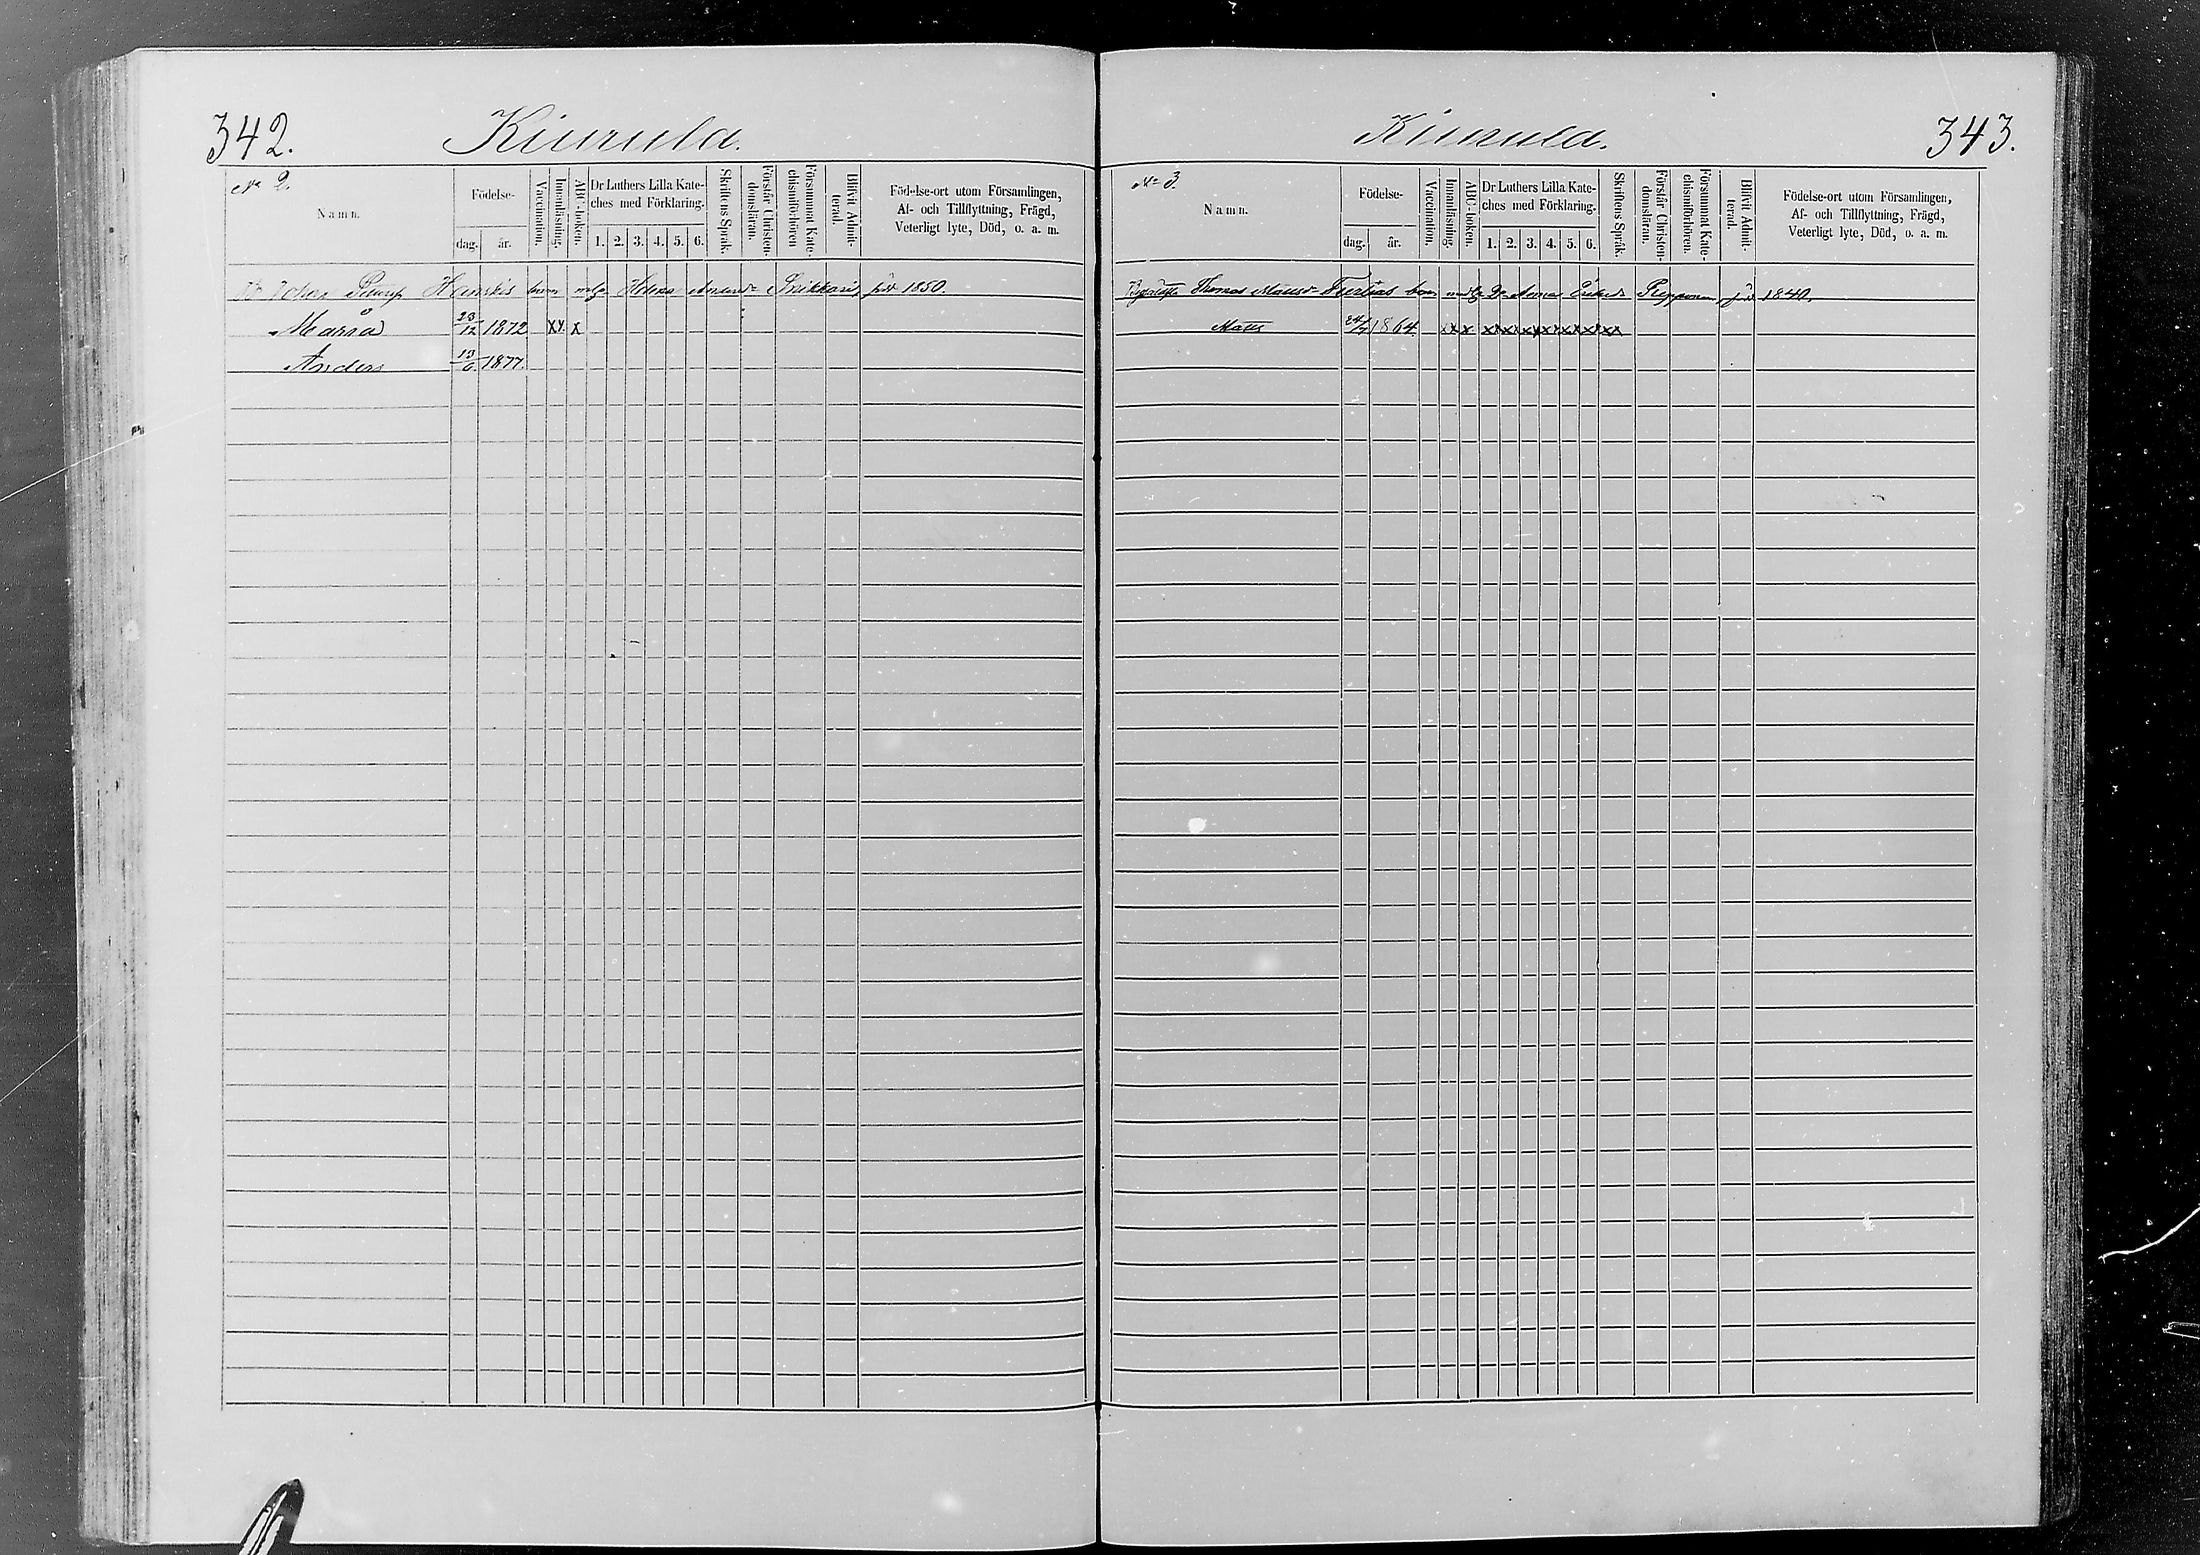 342.
Kiurula.
No 2.
Namn.
Födelse-
dag.
år.
Vaccination.
Innanläsning.
ABC-boken.
Dr Luthers Lilla Kate-
ches med Förklaring.
1. 2. 3. 4. 5. 6.
Skriftens Språk.
Förstår Christen-
domsläran.
Försummat Kate-
chismiförhören
Blifvit Admit-
terad.
Födelse-ort utom Församlingen,
Af- och Tillflyttning, Frägd,
Veterligt lyte, Död, o. a. m.
Johan Hanskis barn Helena Snikkaris född 1850.
Maria 23/12 1872 X X X
Anders 13/6 1877.
Kiurula.
343.
No 3.
Namn.
Födelse-
dag.
år.
Vaccination.
Innanläsning.
ABC-boken.
Dr Luthers Lilla Kate-
ches med Förklaring.
1. 2. 3. 4. 5. 6.
Skriftens Språk.
Förstår Christen-
domsläran.
Försummat Kate-
chismiförhören.
Blifvit Admit-
terad.
Födelse-ort utom Församlingen,
Af- och Tillflyttning, Frägd,
Veterligt lyte, Död, o. a. m.
Thomas barn Anna född 1840.
Matts 1864.